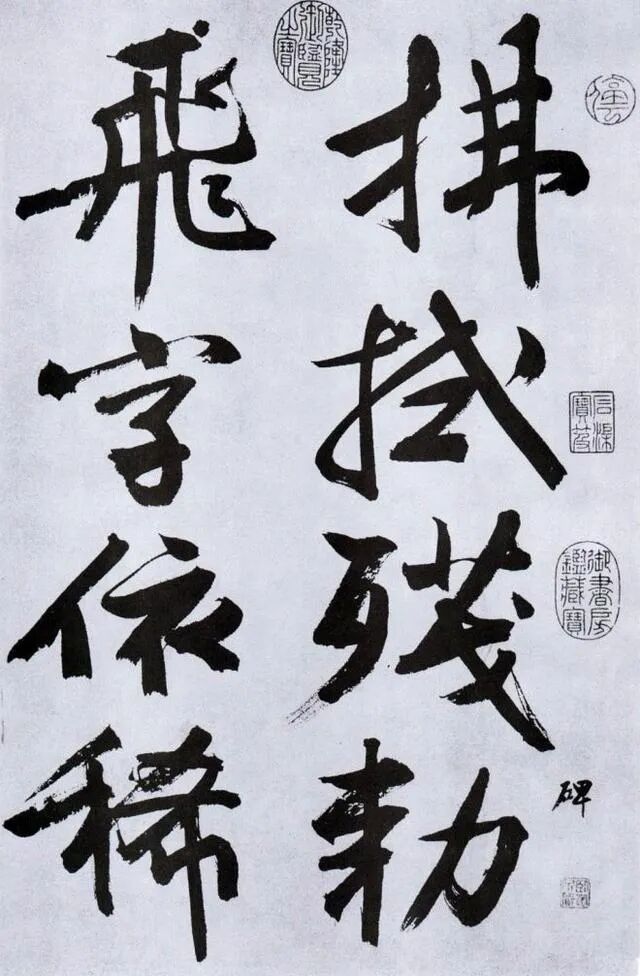 碑
拂拭殘勅
飛字依稀
乾隆御覽之寶
石渠寶笈
御書房鑑藏寶